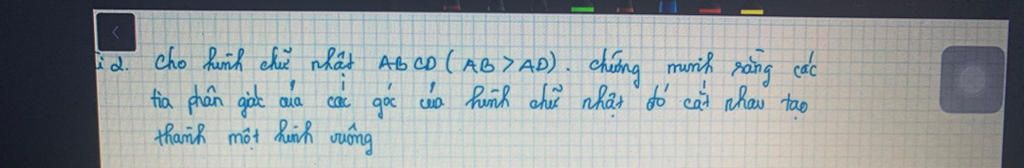 i 2. Cho hình chữ nhật ABCD (AB > AD). chứng minh rằng các
tia phân giác của các góc của hình chữ nhật đó cắt nhau tạo
thành một hình vuông